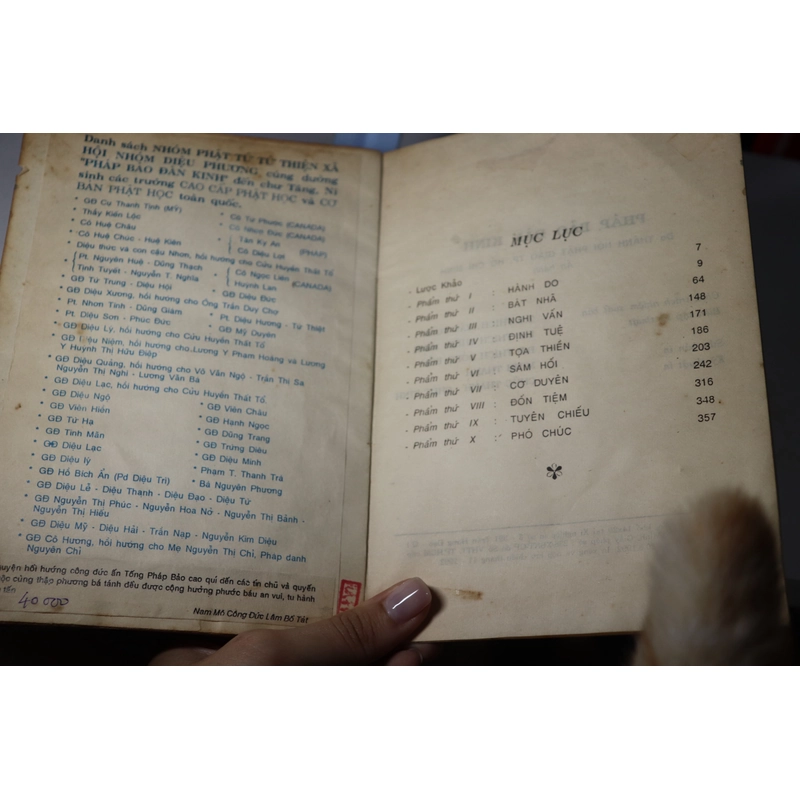 Danh sách NHÓM PHẬT TỬ TỪ THIỆN XÃ
HỘI NHÓM DIỆU PHƯƠNG, cúng dường
"PHÁP BẢO ĐÀN KINH" đến chư Tăng, Ni
sinh các trường CAO CẤP PHẬT HỌC và CƠ
BẢN PHẬT HỌC toàn quốc.
* GĐ Cụ Thanh Tịnh (MỸ)
* Cô Từ Phước (CANADA)
* Thầy Kiến Lộc
* Cô Nhựt Đức (CANADA)
* Cô Huệ Châu
* Tào Kỵ An
* Cô Huệ Chúc - Huệ Kiên
* Cô Diệu Lợi (PHÁP)
* Diệu thức và con cậu Nhơn, hồi hướng cho Cửu Huyền Thất Tổ
* Pt. Nguyên Huệ - Dũng Thạch
* Cô Ngọc Liên
Tịnh Tuyết - Nguyễn T. Nghĩa
Huỳnh Lan (CANADA)
* GĐ Từ Trung - Diệu Hội
* GĐ Diệu Đức
* GĐ Diệu Xương, hồi hướng cho Ông Trần Duy Chợ
* Pt. Nhơn Tịnh - Dũng Giàm
* Pt. Diệu Hương - Từ Thiệt
* Pt. Diệu Sơn - Phúc Đức
* GĐ Mỹ Duyên
* GĐ Diệu Lý, hồi hướng cho Cửu Huyền Thất Tổ
* GĐ Diệu Niệm, hồi hướng cho Lương Y Phạm Hoàng và Lương
Y Huỳnh Thị Hữu Điệp
* GĐ Diệu Quảng, hồi hướng cho Võ Văn Ngộ - Trần Thị Sa
Nguyễn Thị Nghi - Lương Văn Bá
* GĐ Diệu Lạc, hồi hướng cho Cửu Huyền Thất Tổ
* GĐ Diệu Ngộ
* GĐ Viên Châu
* GĐ Viên Hiển
* GĐ Hạnh Ngọc
* GĐ Từ Hạ
* GĐ Dũng Trang
* GĐ Tịnh Mãn
* GĐ Trừng Diệu
* GĐ Diệu Lạc
* GĐ Diệu Minh
* GĐ Diệu lý
* Phạm T. Thanh Trà
* GĐ Hồ Bích Ẩn (Pd Diệu Tri)
* Bà Nguyên Phương
* GĐ Diệu Lễ - Diệu Thạnh - Diệu Đạo - Diệu Từ
* GĐ Nguyễn Thị Phúc - Nguyễn Hoa Nở - Nguyễn Thị Bảnh -
Nguyễn Thị Hiếu
* GĐ Diệu Mỹ - Diệu Hải - Trần Nạp - Nguyễn Kim Diệu
* GĐ Cô Hương, hồi hướng cho Mẹ Nguyễn Thị Chỉ, Pháp danh
Nguyên Chỉ
nguyện hồi hướng công đức ấn Tống Pháp Bảo cao quí đến các tín chủ và quyến
thuộc cùng thập phương bá tánh đều được cộng hưởng phước báu an vui, tu hành
tấn
40 000
Nam Mô Công Đức Lâm Bồ Tát
MỤC LỤC
- Lược Khảo 7
- Phẩm thứ I : HÀNH DO 9
- Phẩm thứ II : BÁT NHÃ 64
- Phẩm thứ III : NGHI VẤN 148
- Phẩm thứ IV : ĐỊNH TUỆ 171
- Phẩm thứ V : TỌA THIỀN 186
- Phẩm thứ VI : SÁM HỐI 203
- Phẩm thứ VII : CƠ DUYÊN 242
- Phẩm thứ VIII : ĐỐN TIỆM 316
- Phẩm thứ IX : TUYÊN CHIẾU 348
- Phẩm thứ X : PHÓ CHÚC 357